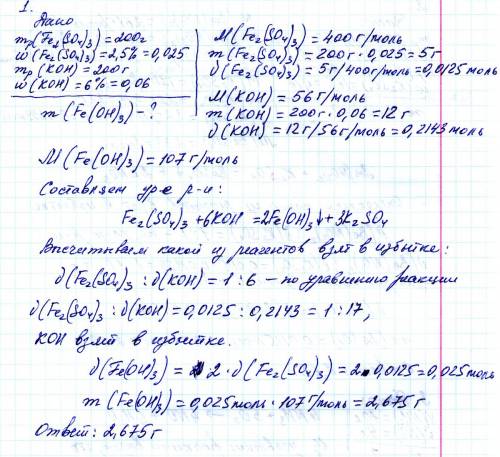 1.
Дано
mр(Fe2(SO4)3) = 200г
ω(Fe2(SO4)3) = 2,5% = 0,025
mр(KOH) = 200г
ω(KOH) = 6% = 0,06
m(Fe(OH)3) - ?
M(Fe2(SO4)3) = 400 г/моль
m(Fe2(SO4)3) = 200г · 0,025 = 5г
ν(Fe2(SO4)3) = 5г/400г/моль = 0,0125 моль
M(KOH) = 56 г/моль
m(KOH) = 200г · 0,06 = 12г
ν(KOH) = 12г/56г/моль = 0,2143 моль
M(Fe(OH)3) = 107 г/моль
Составляем ур-е р-и:
Fe2(SO4)3 + 6KOH = 2Fe(OH)3↓ + 3K2SO4
Высчитываем какой из реагентов взят в избытке:
ν(Fe2(SO4)3 : ν(KOH) = 1 : 6 – по уравнению реакции
ν(Fe2(SO4)3 : ν(KOH) = 0,0125 : 0,2143 = 1 : 17,
KOH взят в избытке.
ν(Fe(OH)3) = 2 · ν(Fe2(SO4)3) = 2 · 0,0125 = 0,025 моль
m(Fe(OH)3) = 0,025 моль · 107 г/моль = 2,675 г
Ответ: 2,675 г